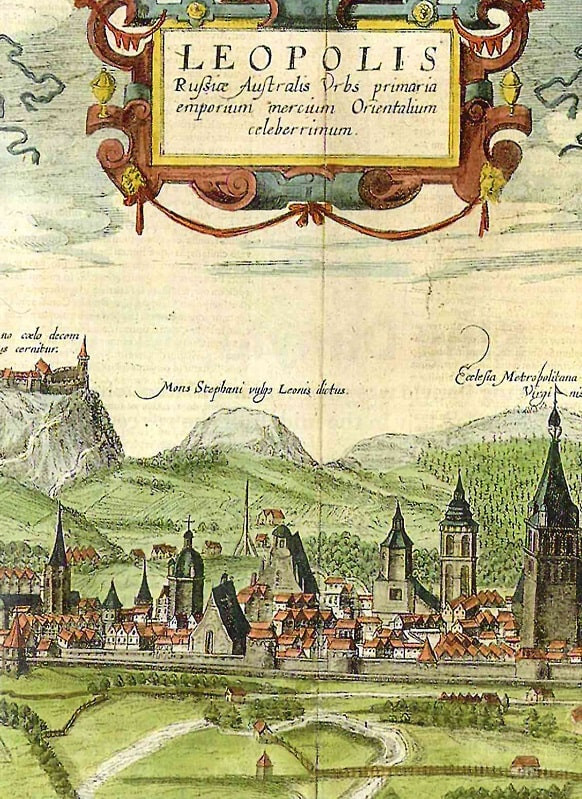 LEOPOLIS
Rußiæ Auſtralis Vrbs primaria
emporium mercium Orientalium
celeberrimum.
no cælo decem
us cernitur.
Mons Stephani vulgo Leonis dictus.
Ecclesia Metropolitana
Virginis